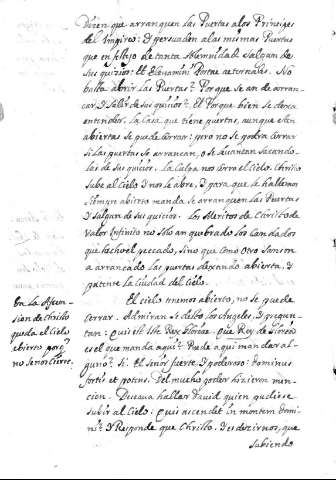 Dicen que arranquen las Puertas a los Principes
del Impireo: Y persuaden a las mismas Puertas
que en fe de tanta solemnidad salgan de
sus quizios: Et elevamini Portae aeternales. No
basta abrir las Puertas? Porque se an de arran-
car Y salir de sus quizios? El Porque bien se dexa
entender. La Casa que tiene puertas, aunque esten
abiertas se puede cerrar: pero no se podra cerrar
si las puertas se arrancan, o se levantan sacando-
las de sus quicios. La Culpa nos cerro el Cielo. Christo
sube al Cielo Y nos le abre, Y para que le hallemos
siempre abierto manda se arranquen las Puertas
Y salgan de sus quicios. Los Meritos de Christo de
Valor Infinito no solo an quebrado los Candados
que hecho el peccado, sino que como otro Sanson
a arrancado las puertas dexando abierta, Y
patente la ciudad del Cielo.
En la Ascen-
sion de Christo
queda el Cielo
abierto porq
no se nos cierre.
El cielo tenemos abierto, no se puede
cerrar. Admiran se desto los Angeles, Y pregun-
tan: Quis est iste Rex Gloriae. Que Rey de Gloria
es el que manda aqui? Puede aqui mandar al-
guno? Si. El Señor fuerte, Y poderoso: Dominus
fortis et potens. Del mucho poder hizieron men-
cion. Deseava hallar David quien pudiese
subir al Cielo: Quis ascendet in montem Domi-
ni? Y Responde que Christo. Y es dezirnos, que
subiendo